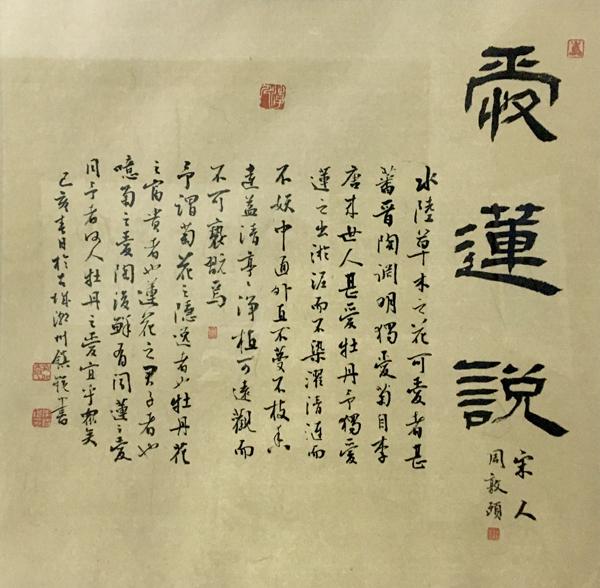 愛蓮說
宋人
周敦頤
水陸草木之花可愛者甚
蕃晉陶淵明獨愛菊自李
唐来世人甚愛牡丹予獨愛
蓮之出淤泥而不染濯清漣而
不妖中通外直不蔓不枝香
遠益清亭〻淨植可遠觀而
不可褻翫焉
予謂菊花之隱逸者也牡丹花
之富貴者也蓮花之君子者也
噫菊之愛陶後鮮有聞蓮之愛
同予者何人牡丹之愛宜乎眾矣
己亥春日於 潮州鎮 書